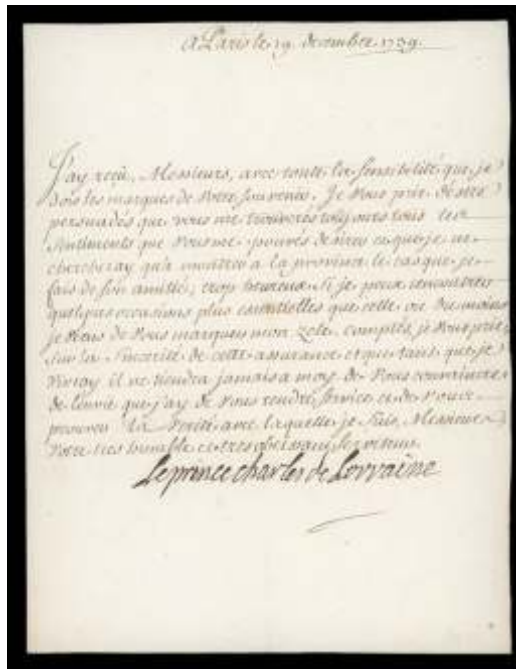 A Paris le 19. decembre 1739.
J'ay reçu, Messieurs, avec toute la sensibilité que je
dois les marques de votre souvenir. Je vous prie d'estre
persuadés que vous me trouverés toujours tous les
sentiments que vous me pouvés desirer et que je ne
chercheray qu'a montrer a la province le cas que je
fais de son amitié, trop heureux si je peux rencontrer
quelques occasions plus essentielles que celle ou du moins
je viens de vous marquer mon zele. comptés, je vous prie
sur la sincerité de cette assurance et que tant que je
vivray il ne tiendra jamais a moy de vous convaincre
de l'envie que j'ay de vous rendre service et de vous
prouver la verité avec laquelle je suis, Messieurs
Votre tres humble et tres obeissant serviteur.
Le prince charles de Lorraine